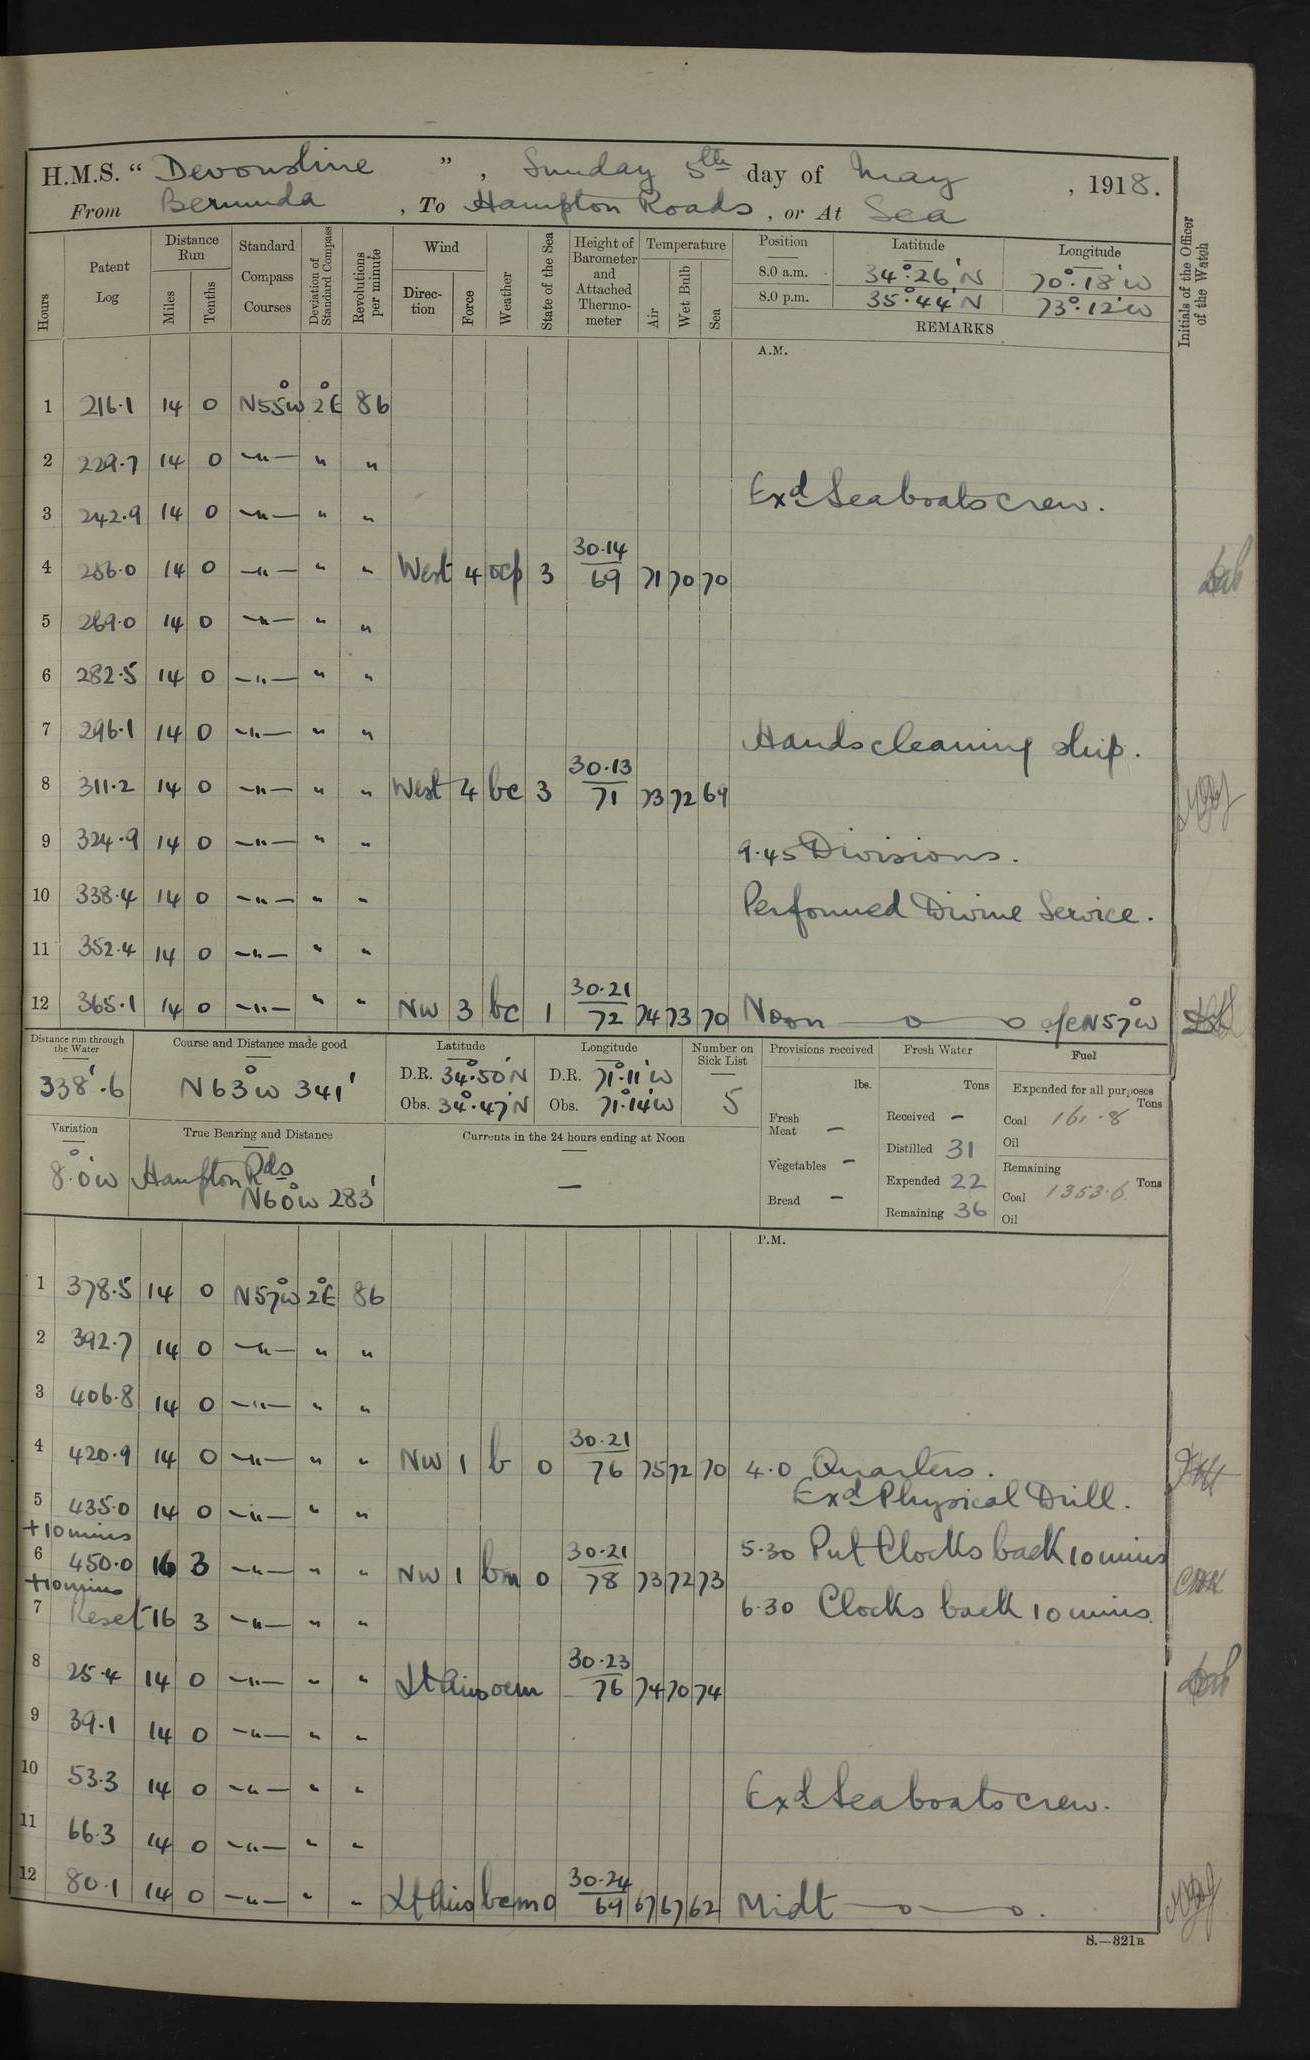 H.M.S. “ Devonshire ” , Sunday 5th day of May , 1918.
From Bermuda , To Hampton Roads , or At Sea
Hours Patent Log Distance Run Miles Tenths Standard Compass Courses Deviation of Standard Compass Revolutions per minute Wind Direction Force Weather State of the Sea Height of Barometer and Attached Thermometer Temperature Air Wet Bulb Sea Position Latitude Longitude Initials of the Officer of the Watch
8.0 a.m. 34°.26'N 70°.18'W
8.0 p.m. 35°.44'N 73°.12'W
REMARKS
A.M.
1 216.1 14 0 N55°W 2°E 86
2 229.7 14 0 —"— " "
Exd Seaboats crew.
3 242.9 14 0 —"— " "
4 256.0 14 0 —"— " " West 4 ocp 3 30.14 69 71 70 70
5 269.0 14 0 —"— " "
6 282.5 14 0 —"— " "
7 296.1 14 0 —"— " " Hands cleaning ship.
8 311.2 14 0 —"— " " West 4 bc 3 30.13 71 73 72 69
9 324.9 14 0 —"— " " 9.45 Divisions.
10 338.4 14 0 —"— " " Performed Divine Service.
11 352.4 14 0 —"— " "
12 365.1 14 0 —"— " " NW 3 bc 1 30.21 72 74 73 70 Noon —o—o a/c N57°W
Distance run through the Water 338'.6
Course and Distance made good N63°W 341'
Latitude D.R. 34°.50'N Obs. 34°.47'N
Longitude D.R. 71°.11'W Obs. 71°.14'W
Number on Sick List 5
Provisions received lbs.
Fresh Meat —
Vegetables —
Bread —
Fresh Water Tons
Received —
Distilled 31
Expended 22
Remaining 36
Fuel
Expended for all purposes Tons
Coal 161.8
Oil
Remaining Tons
Coal 1353.6
Oil
Variation 8°.0'W
True Bearing and Distance Hampton Rds N60°W 283'
Currents in the 24 hours ending at Noon —
P.M.
1 378.5 14 0 N57°W 2°E 86
2 392.7 14 0 —"— " "
3 406.8 14 0 —"— " "
4 420.9 14 0 —"— " " NW 1 b 0 30.21 76 75 72 70 4.0 Quarters.
Exd Physical Drill.
5 435.0 14 0 —"— " "
+10 mins
5.30 Put Clocks back 10 mins
6 450.0 16 3 —"— " " NW 1 bm 0 30.21 78 73 72 73
+10 mins
7 Reset 16 3 —"— " " 6.30 Clocks back 10 mins.
8 25.4 14 0 —"— " " Lt Airs ocm 30.23 76 74 70 74
9 39.1 14 0 —"— " "
10 53.3 14 0 —"— " " Exd Seaboats crew.
11 66.3 14 0 —"— " "
12 80.1 14 0 —"— " " Lt Airs bcm 0 30.24 69 67 67 62 Midt —o—o.
S.—321B